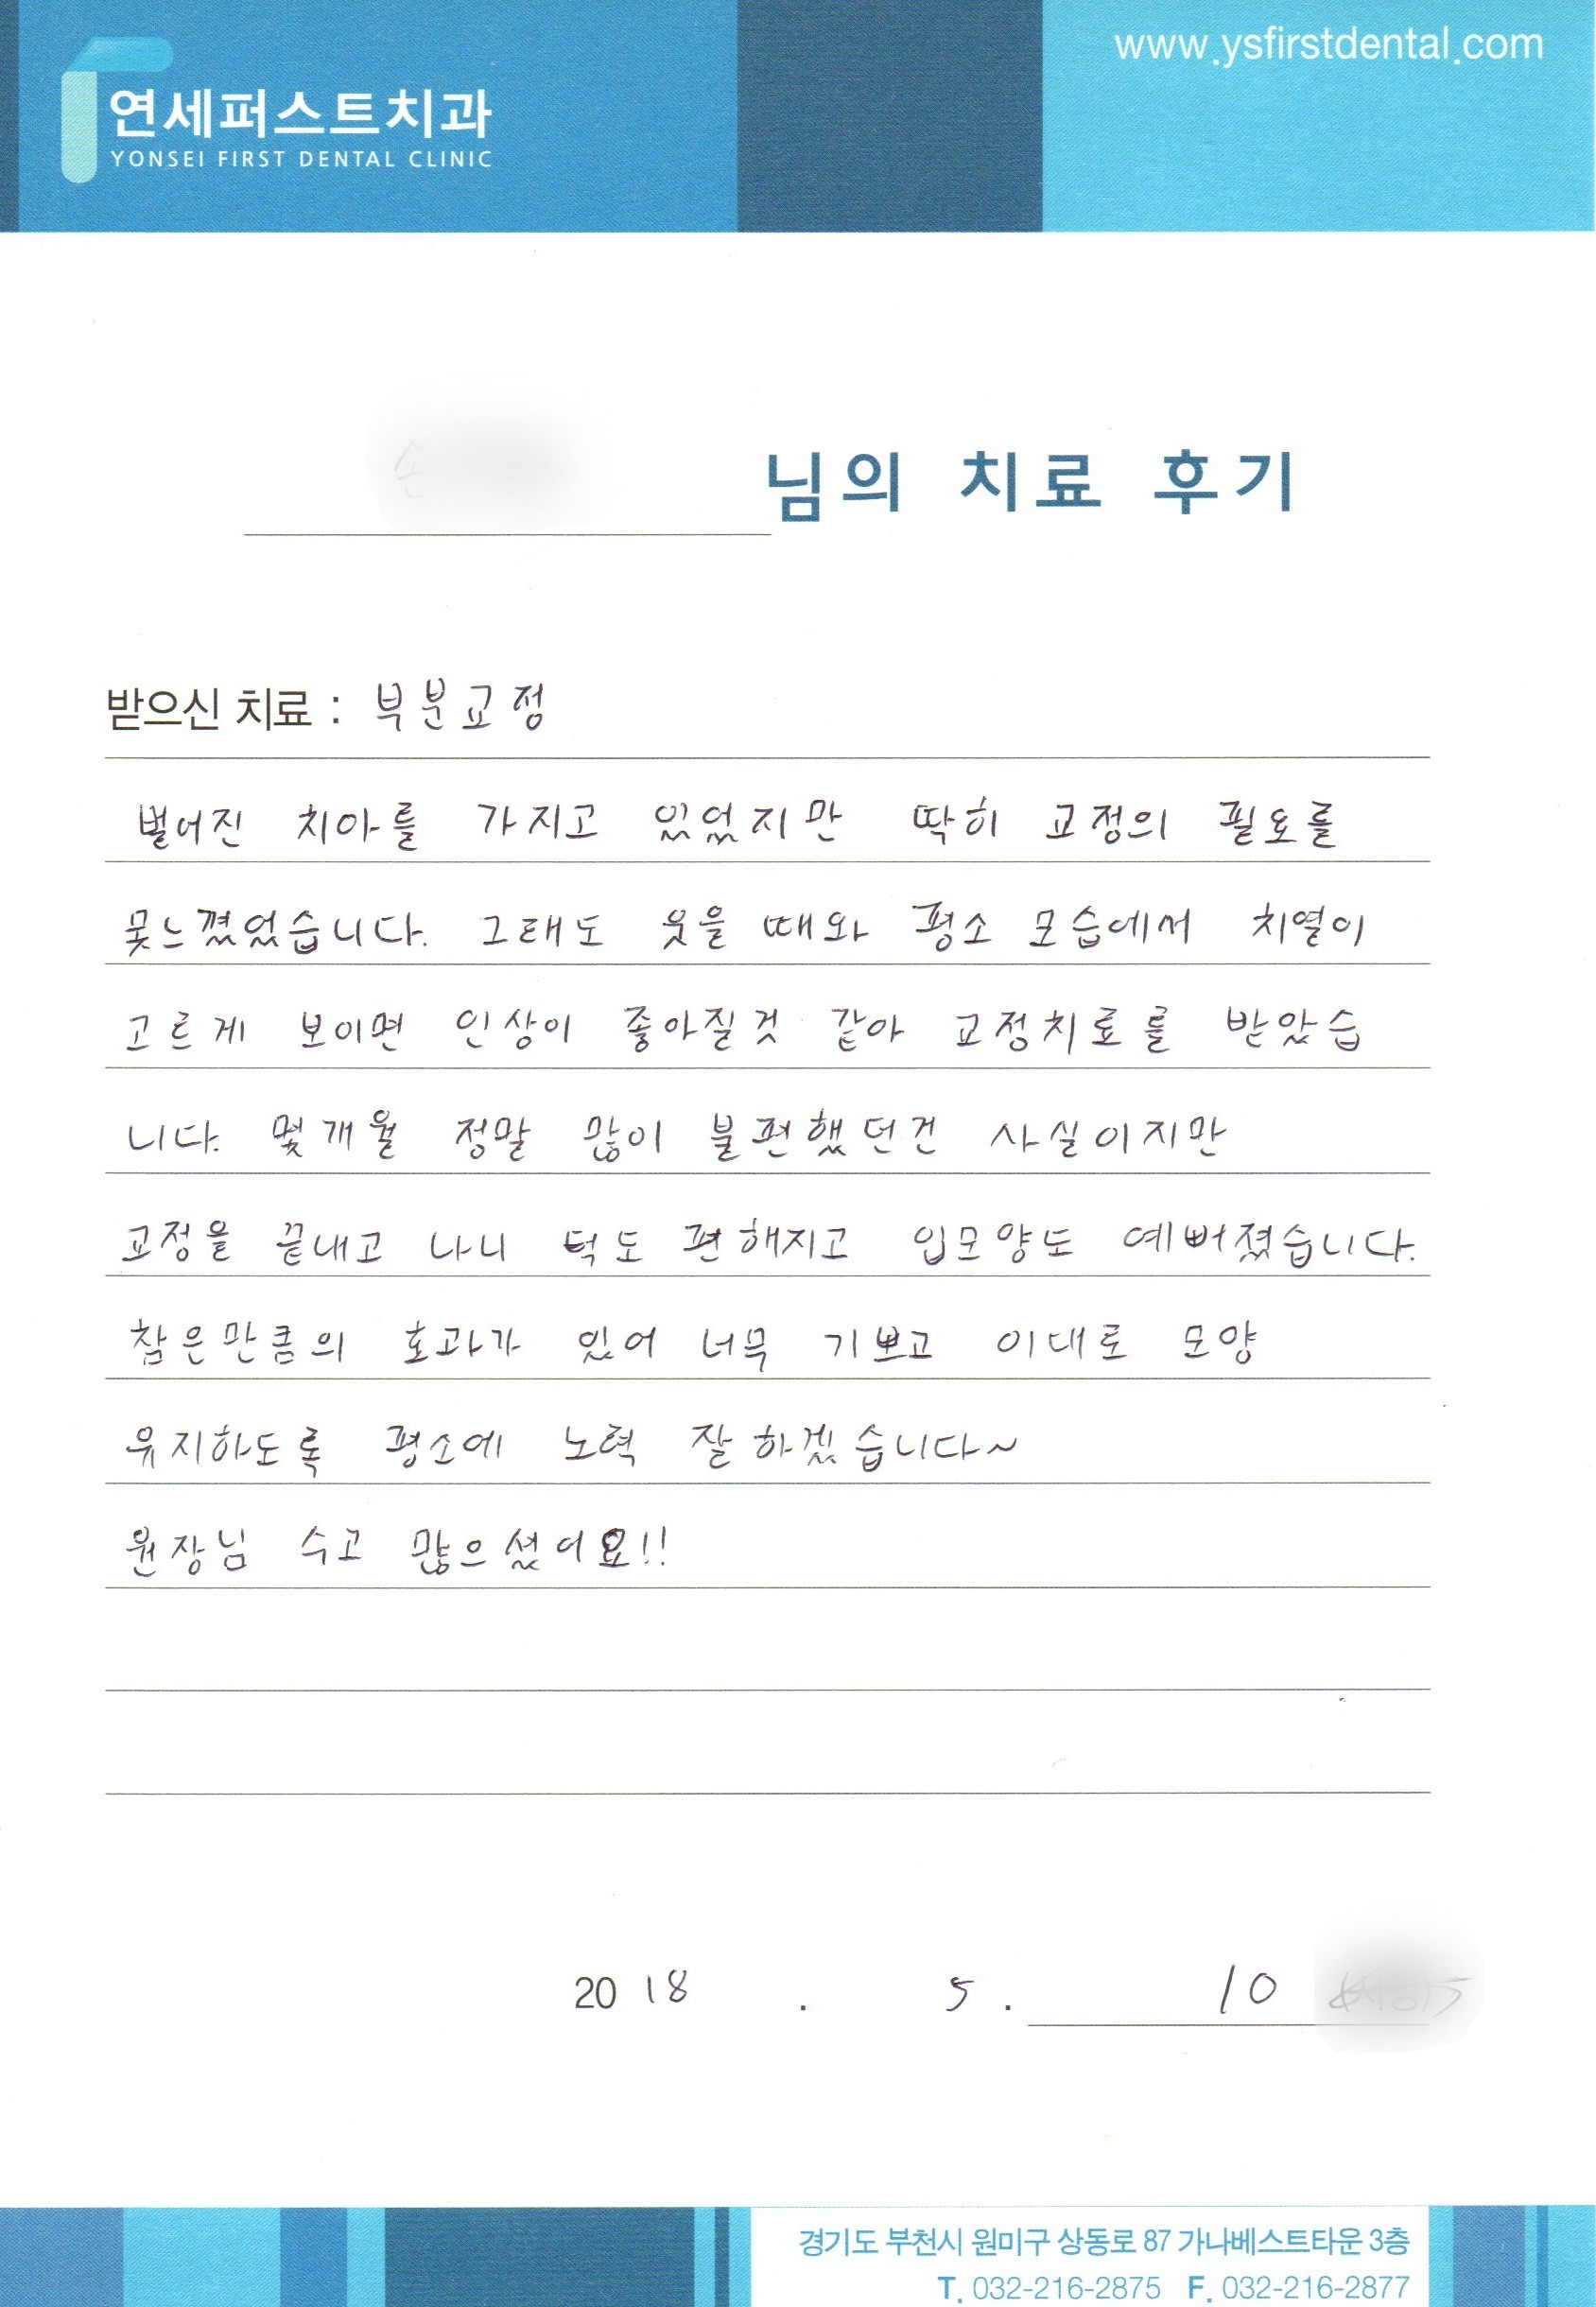 www.ysfirstdental.com
연세퍼스트치과
YONSEI FIRST DENTAL CLINIC
님의 치료 후기
받으신 치료 : 부분교정
벌어진 치아를 가지고 있었지만 딱히 교정의 필요를
못느꼈었습니다. 그래도 웃을 때와 평소 모습에서 치열이
고르게 보이면 인상이 좋아질것 같아 교정치료를 받았습
니다. 몇개월 정말 많이 불편했던건 사실이지만
교정을 끝내고 나니 턱도 편해지고 입모양도 예뻐졌습니다.
참은만큼의 효과가 있어 너무 기쁘고 이대로 모양
유지하도록 평소에 노력 잘하겠습니다~
원장님 수고 많으셨어요!!
2018 . 5 . 10
경기도 부천시 원미구 상동로 87 가나베스트타운 3층
T. 032-216-2875 F. 032-216-2877